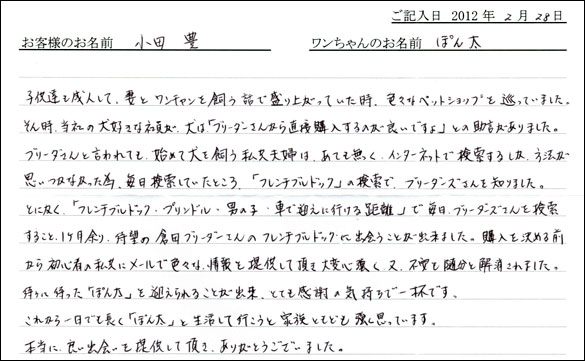 ご記入日 2012 年 2 月 28 日
お客様のお名前 小田 豊 ワンちゃんのお名前 ぽん太
子供達も成人して、妻とワンチャンを飼う話で盛り上がっていた時、色々なペットショップを巡っていました。
そん時、当社の犬好きな社員が、犬は「ブリーダーさんから直接購入するのが良いですよ」との助言がありました。
ブリーダーさんと言われても、始めて犬を飼う私共夫婦は、あても無く、インターネットで検索するしか、方法が
思いつかなかった為、毎日検索していたところ、「フレンチブルドック」の検索で、ブリーダーズさんを知りました。
とにかく、「フレンチブルドック・ブリンドル・男の子・車で迎えに行ける距離」で毎日、ブリーダーズさんを検索
すること、1ヶ月余り、待望の倉田ブリーダーさんのフレンチブルドックに出会うことが出来ました。購入を決める前
から初心者の私共にメールで色々な、情報を提供して頂き大変心強く、又、不安も随分と解消されました。
待ちに待った「ぽん太」を迎えられることが出来、とても感謝の気持ちで一杯です。
これから一日でも長く「ぽん太」と生活して行こうと家族ともども強く思っています。
本当に、良い出会いを提供して頂き、ありがとうございました。